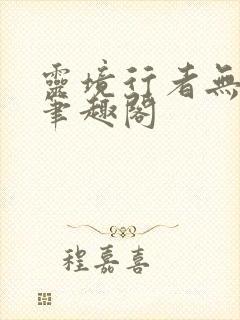 靈境行者無
筆趣閣
程嘉喜